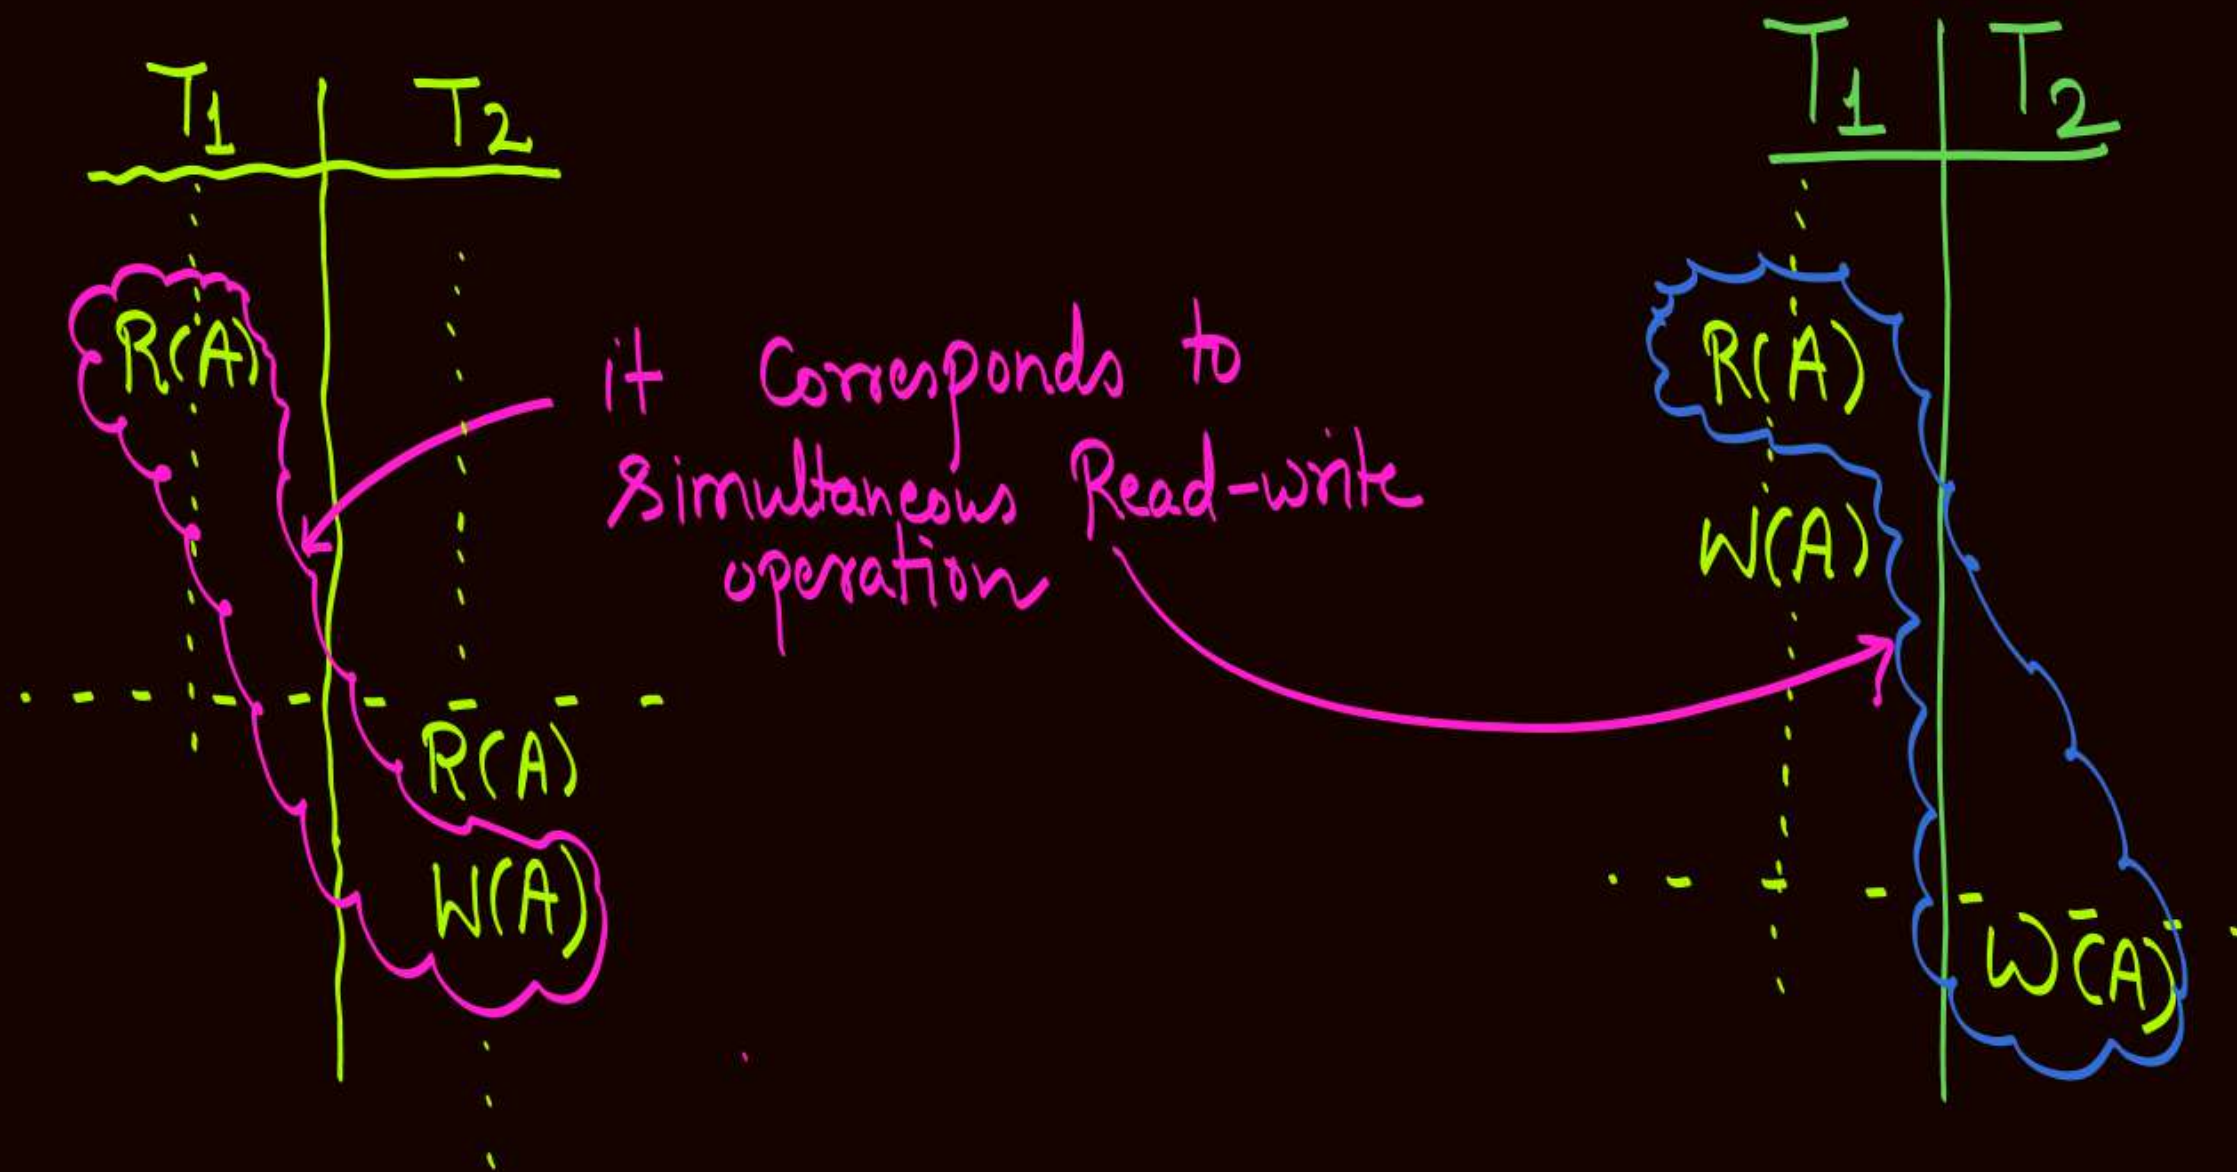 T1 T2
R(A)
R(A)
W(A)
it Corresponds to
Simultaneous Read-write
operation
T1 T2
R(A)
W(A)
W(A)